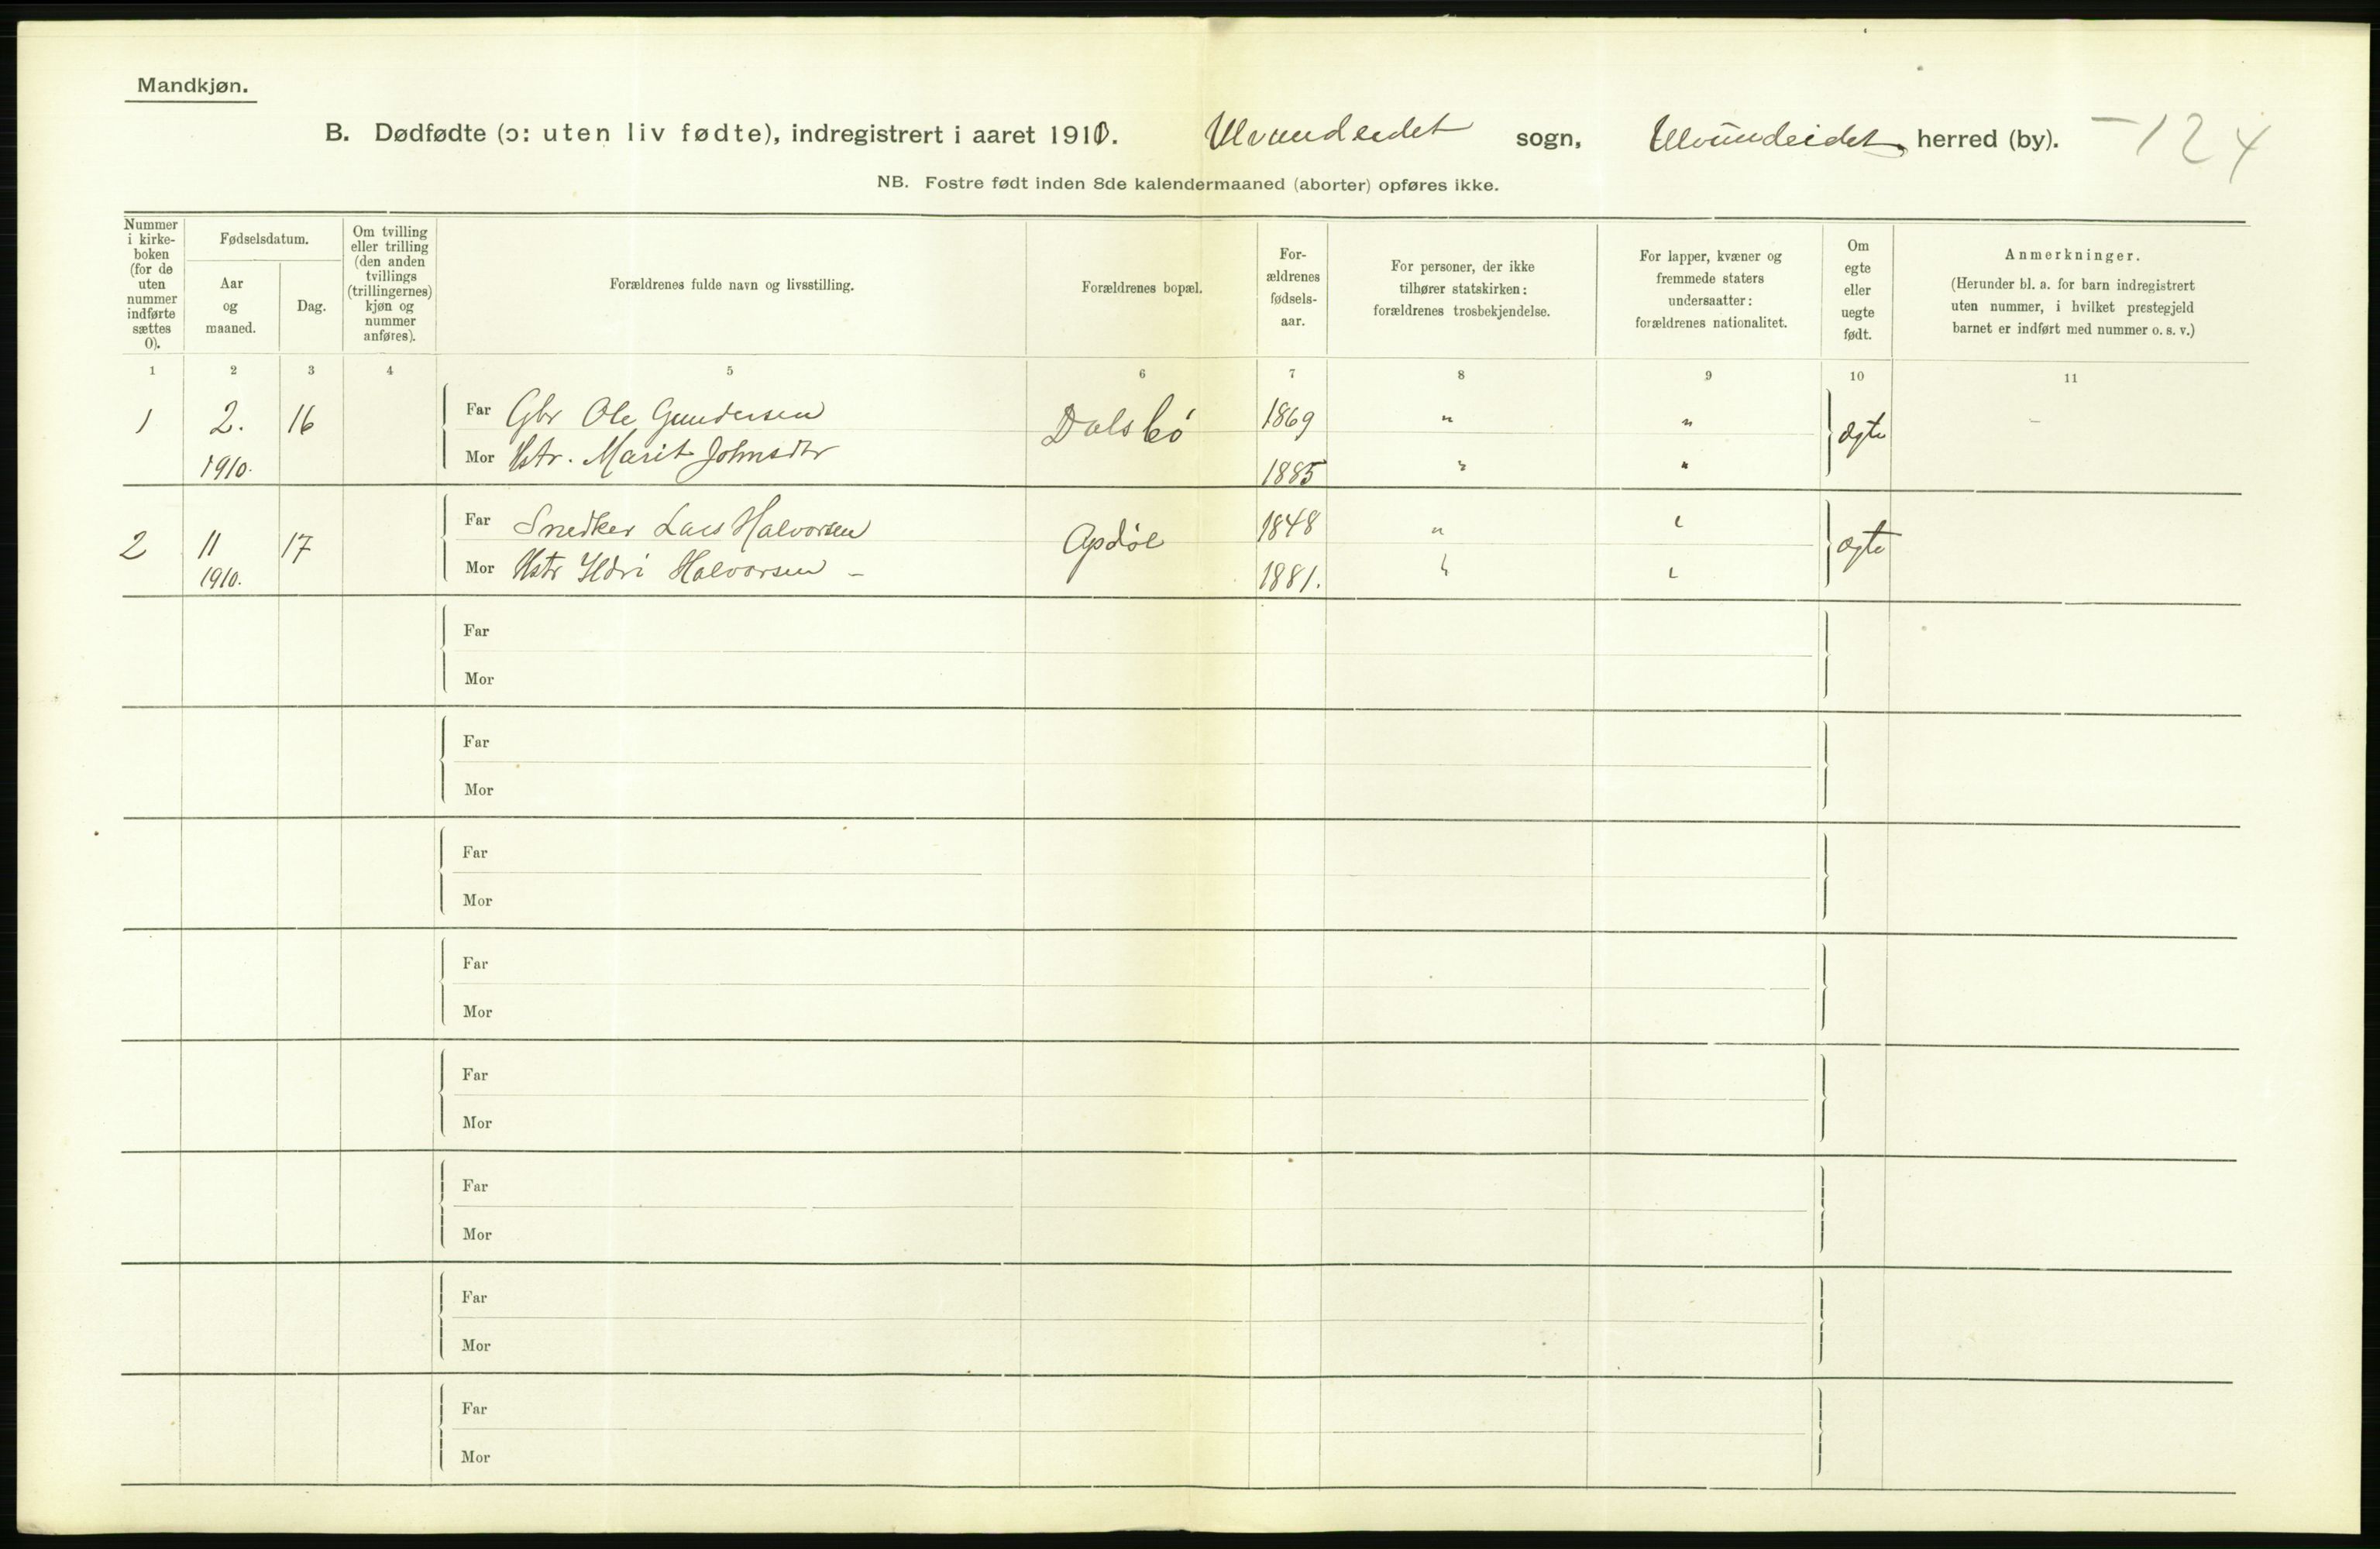 Mandkjøn.
B. Dødfødte (ɔ: uten liv fødte), indregistrert i aaret 1910. Ulvundeidet sogn, Ulvundeidet herred (by). – 124
NB. Fostre født inden 8de kalendermaaned (aborter) opføres ikke.
Nummer i kirke-boken (for de uten nummer indførte sættes 0).
Fødselsdatum.
Aar og maaned.
Dag.
Om tvilling eller trilling (den anden tvillings (trillingernes) kjøn og nummer anføres).
Forældrenes fulde navn og livsstilling.
Forældrenes bopæl.
For-ældrenes fødsels-aar.
For personer, der ikke tilhører statskirken: forældrenes trosbekjendelse.
For lapper, kvæner og fremmede staters undersaatter: forældrenes nationalitet.
Om egte eller uegte født.
Anmerkninger.
(Herunder bl. a. for barn indregistrert uten nummer, i hvilket prestegjeld barnet er indført med nummer o. s. v.)
1 2 3 4 5 6 7 8 9 10 11
1 2. 16 Far Gbr Ole Gundersen Dalsbö 1869 " " ægte –
1910. Mor Hstr. Marit Johnsdtr 1885 " "
2 11 17 Far Snedker Lars Halvorsen Opdöl 1848 " " ægte
1910. Mor Hstr Ildri Halvorsen – 1881. " "
Far
Mor
Far
Mor
Far
Mor
Far
Mor
Far
Mor
Far
Mor
Far
Mor
Far
Mor